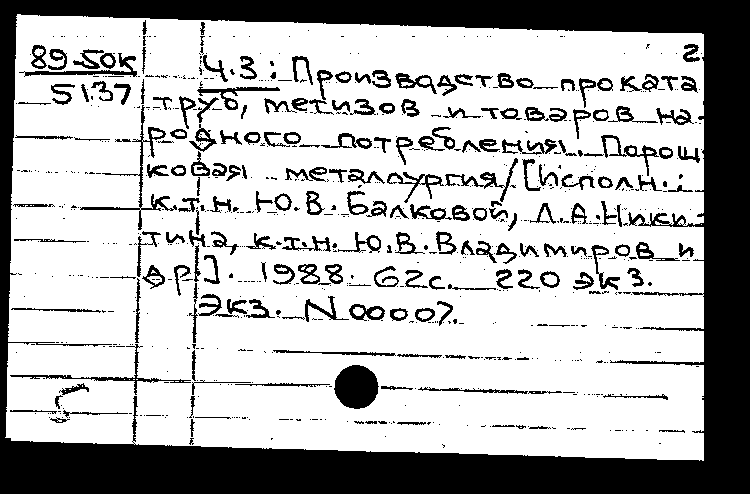 2.
89-50к
5137
Ч.3: Производство проката
труб, метизов и товаров на-
родного потребления. Порош-
ковая металлургия/[Исполн.:
к.т.н. Ю.В. Балковой, Л.А.Ники-
тина, к.т.н. Ю.В.Владимиров и
др.]. 1988. 62с. 220 экз.
Экз. N 00007.